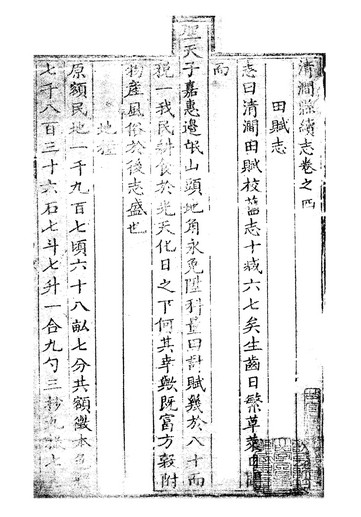 清澗縣續志卷之四
田賦志
志曰清澗田賦校舊志十減六七矣生齒日繁草萊日闢
而
聖天子嘉惠邊氓山頭地角永免陞科量田計賦幾於八十而
稅一我民耕食於光天化日之下何其幸歟既富方穀附
物産風俗於後志盛也
地糧
原額民地一千九百七頃六十八畝七分共額徵本色
七千八百三十六石七斗七升一合九勺三抄九撮七